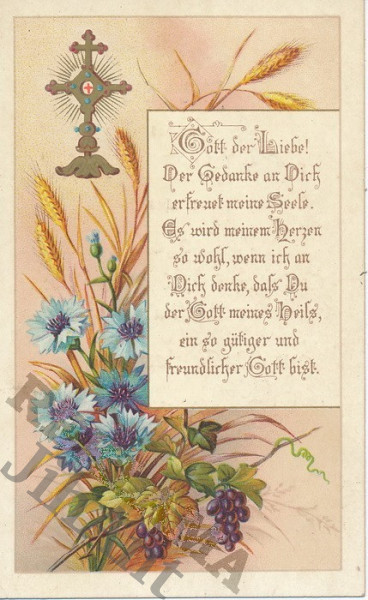 Gott der Liebe!
Der Gedanke an Dich
erfreuet meine Seele.
Es wird meinem Herzen
so wohl, wenn ich an
Dich denke, daß Du
der Gott meines Heils,
ein so gütiger und
freundlicher Gott bist.